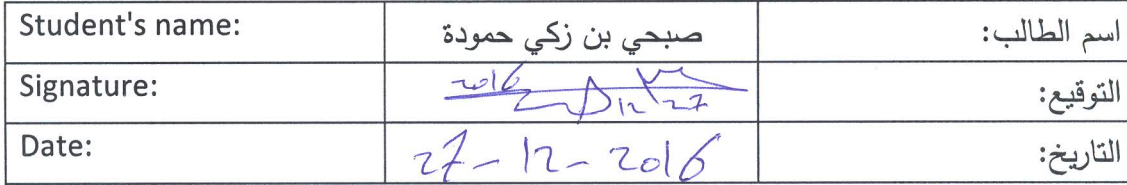 Student's name: صبحي بن زكي حمودة اسم الطالب:
Signature: 2016 12 27 التوقيع:
Date: 27-12-2016 التاريخ: